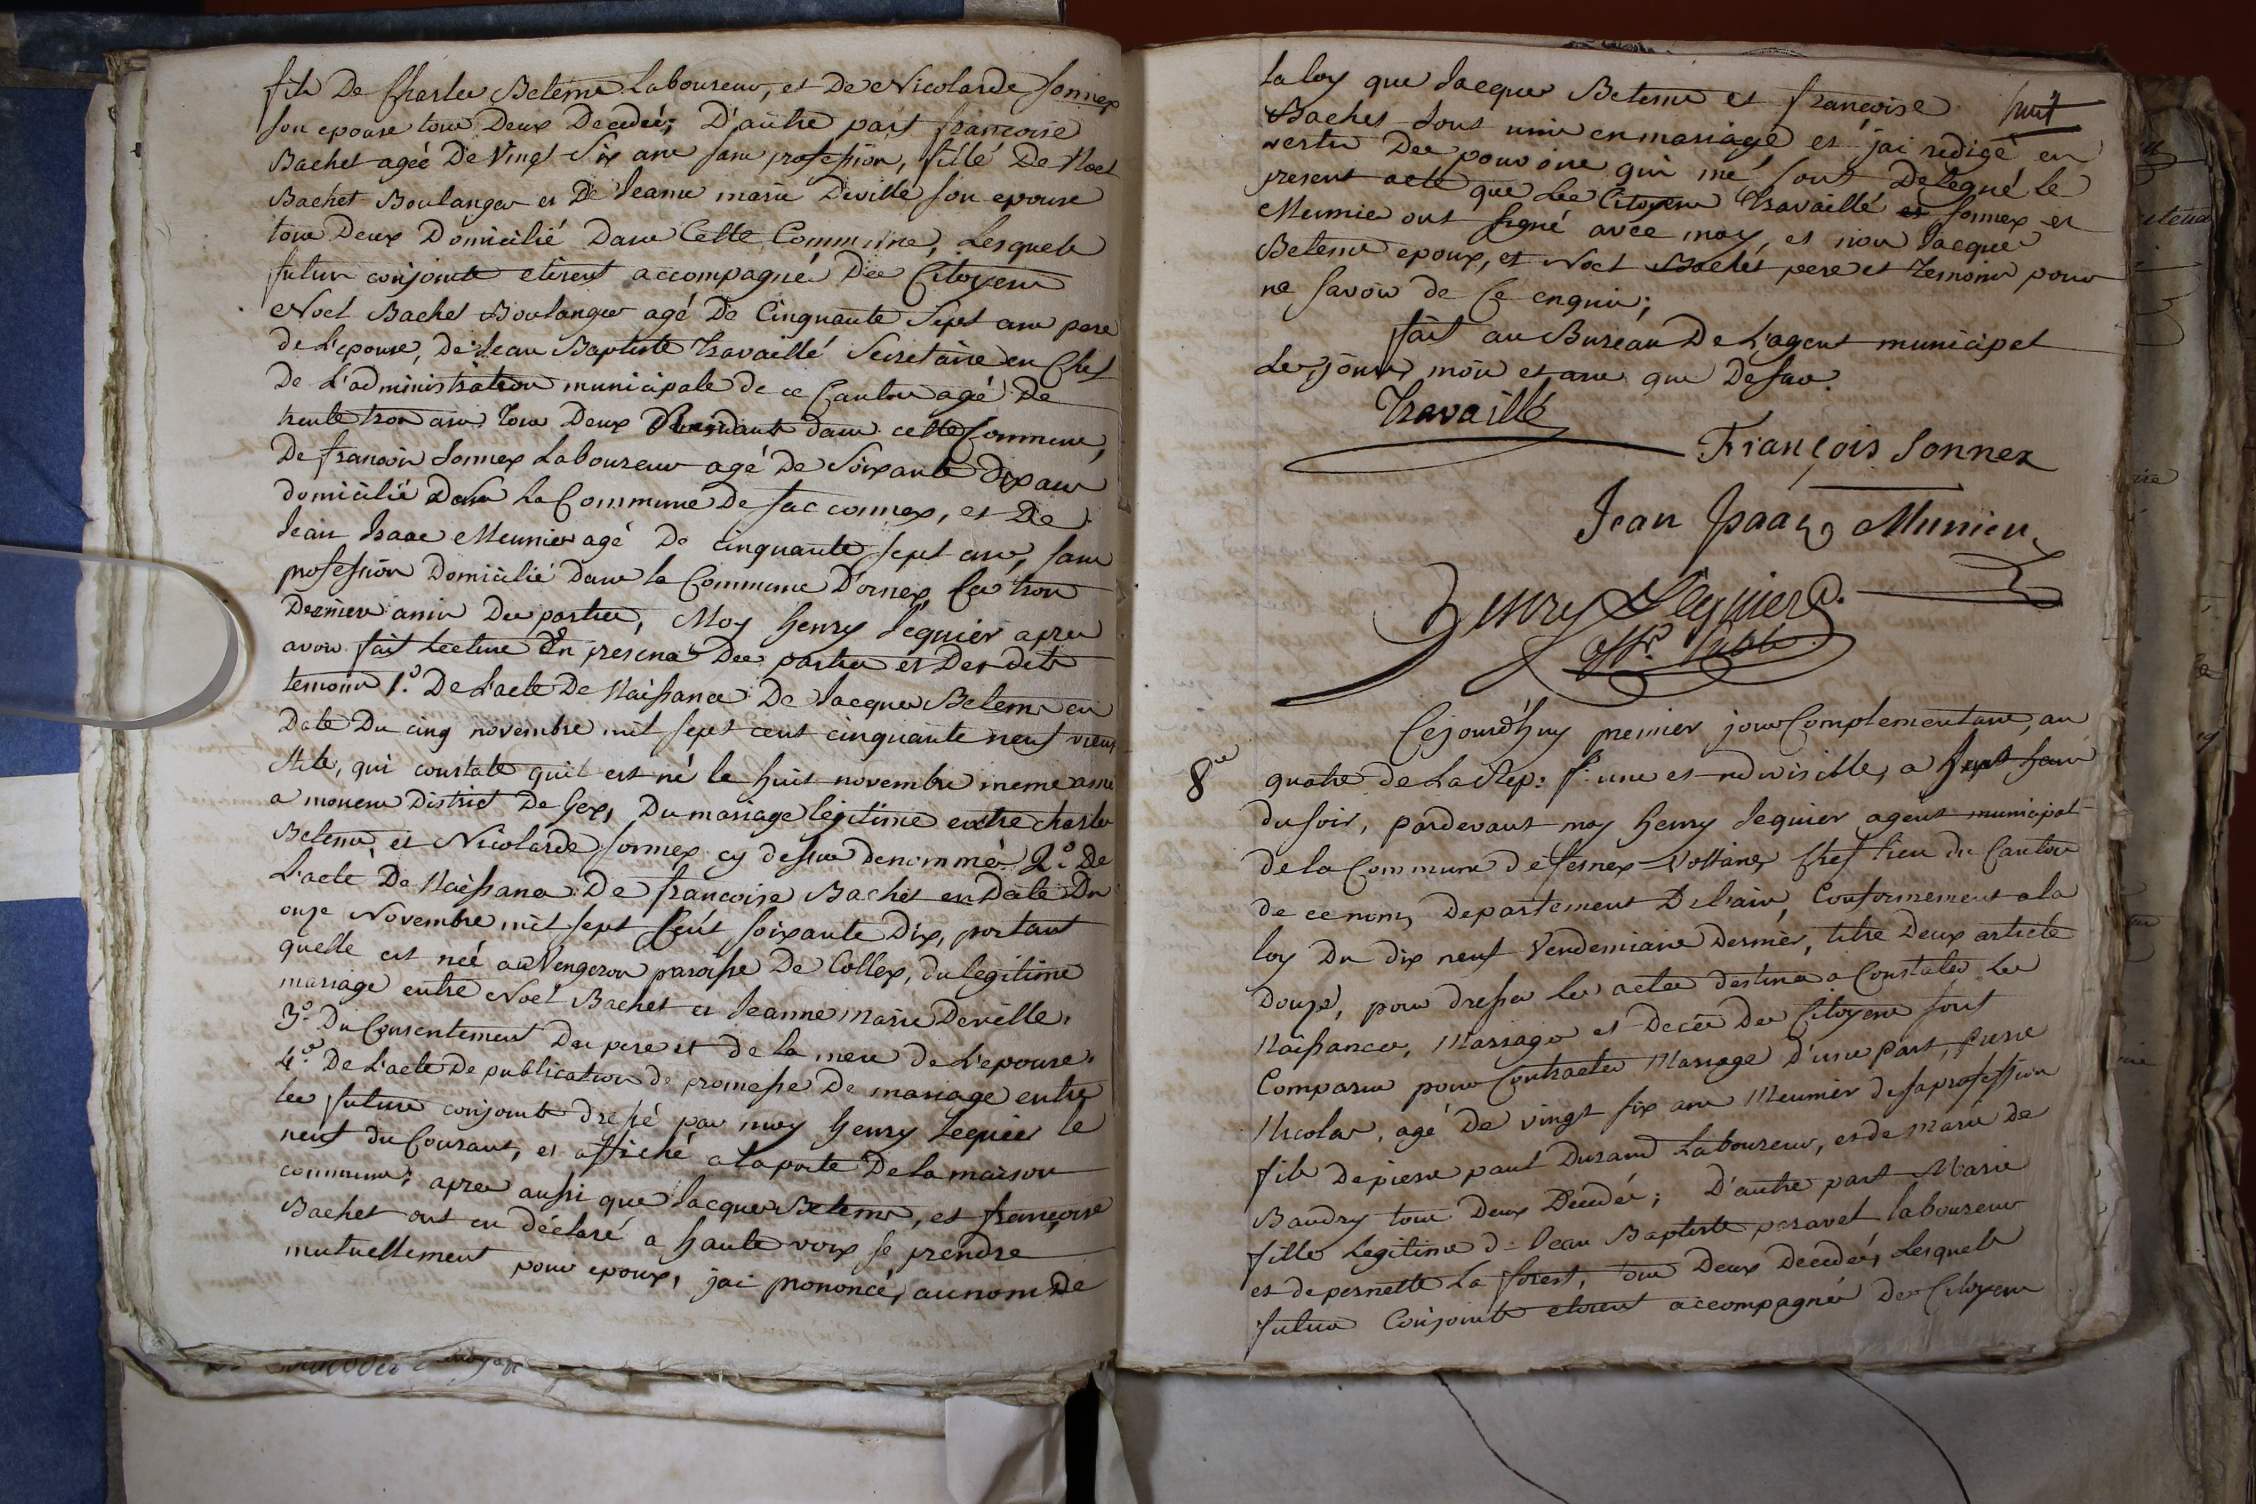 fils De Charles Beteme Laboureur, et De Nicolarde Sonnex
son epouse tous Deux Decedés; D'autre part francoise
Bachet agée De Vingt Six ans sans profession, fille De Noel
Bachet Boulanger et De Jeanne marie Deville son epouse
tous Deux Domicilié Dans Cette Commune, Lesquels
futurs conjoints etirent accompagné Des Citoyens
Noel Bachet Boulanger agé De Cinquante Sept ans pere
de L'epouse, De Jean Baptiste Travaillé Secretaire en Chef
De L'administration municipale de ce Canton agé De
trente trois ans tous Deux Residants dans cette Commune,
De francois Sonnex Laboureur agé De Soixante Dix ans
domicilié dans La Commune De Sacconnex, et De
Jean Isaac Meunier agé De cinquante sept ans, sans
profession Domicilié Dans la Commune D'ornex, Ces trois
Derniers amis Des parties, Moy henry Sequier apres
avoir fait Lecture En presence Des parties et Des dits
temoins 1.º De L'acte De Naissance De Jacques Beteme en
Date Du cinq novembre mil sept cent cinquante neuf vieux
stile, qui constate quil est né le huit novembre meme anné
a mouens District De Gex, Du mariage légitime entre charles
Beteme et Nicolarde Sonnex cy dessus denommés 2.º De
L'acte De Naissance De francoise Bachet en Date Du
onze Novembre mil sept Cent soixante Dix, portant
quelle est née au Vengeron paroisse De Collex, du legitime
mariage entre Noel Bachet et Jeanne Marie Deville.
3.º Du Consentement Des pere et de la mere de L'epouse.
4.º De L'acte De publication de promesse De mariage entre
les futurs conjoints dressé par moy henry Sequier le
neuf du Courant, et affiché a la porte De la maison
commune; apres aussi que Jacques Beteme, et françoise
Bachet ont eu déclaré a haute voix se prendre
mutuellement pour epoux, j'ai prononcé, au nom De
la loy que Jacques Beteme et françoise
huit
Bachet sont unis en mariage et j'ai redigé en
vertu Des pouvoirs qui me sont Delegué le
present acte que Les Citoyens Travaillé et Sonnex et
Meunier ont signé avec moy, et non Jacques
Beteme epoux, et Noel Bachet pere et temoins pour
ne savoir de Ce enquis;
fait au Bureau De L'agent municipal
Les jours, mois et ans que Dessus.
Travaillé
François Sonnex
Jean Isaac Munier
Henry Sequier
Off. Public
Cejourd'huy premier jour Complementaire, an
8e
quatre de La Rep: f. une et indivisible, a sept heures
du soir, pardevant moy henry Sequier agent municipal
de la Commune de fernex-Voltaire, chef Lieu du Canton
de ce nom, Departement De l'ain, Conformement a la
loy Du dix neuf Vendemiaire Dernier, titre Deux article
Douze, pour dresser les actes destines a Constater Les
Naissances, Mariages et Decès Des Citoyens sont
Comparus pour Contracter Mariage D'une part, pierre
Nicolas, agé De vingt six ans Meunier de sa profession
fils De pierre paul Durand Laboureur, et de Marie De
Baudry tous Deux Decedés; D'autre part Marie
fille legitime de Jean Baptiste peravet laboureur
et de pernette La forest, tous Deux Decedés, Lesquels
futurs Conjoints etoient accompagnés Des Citoyens